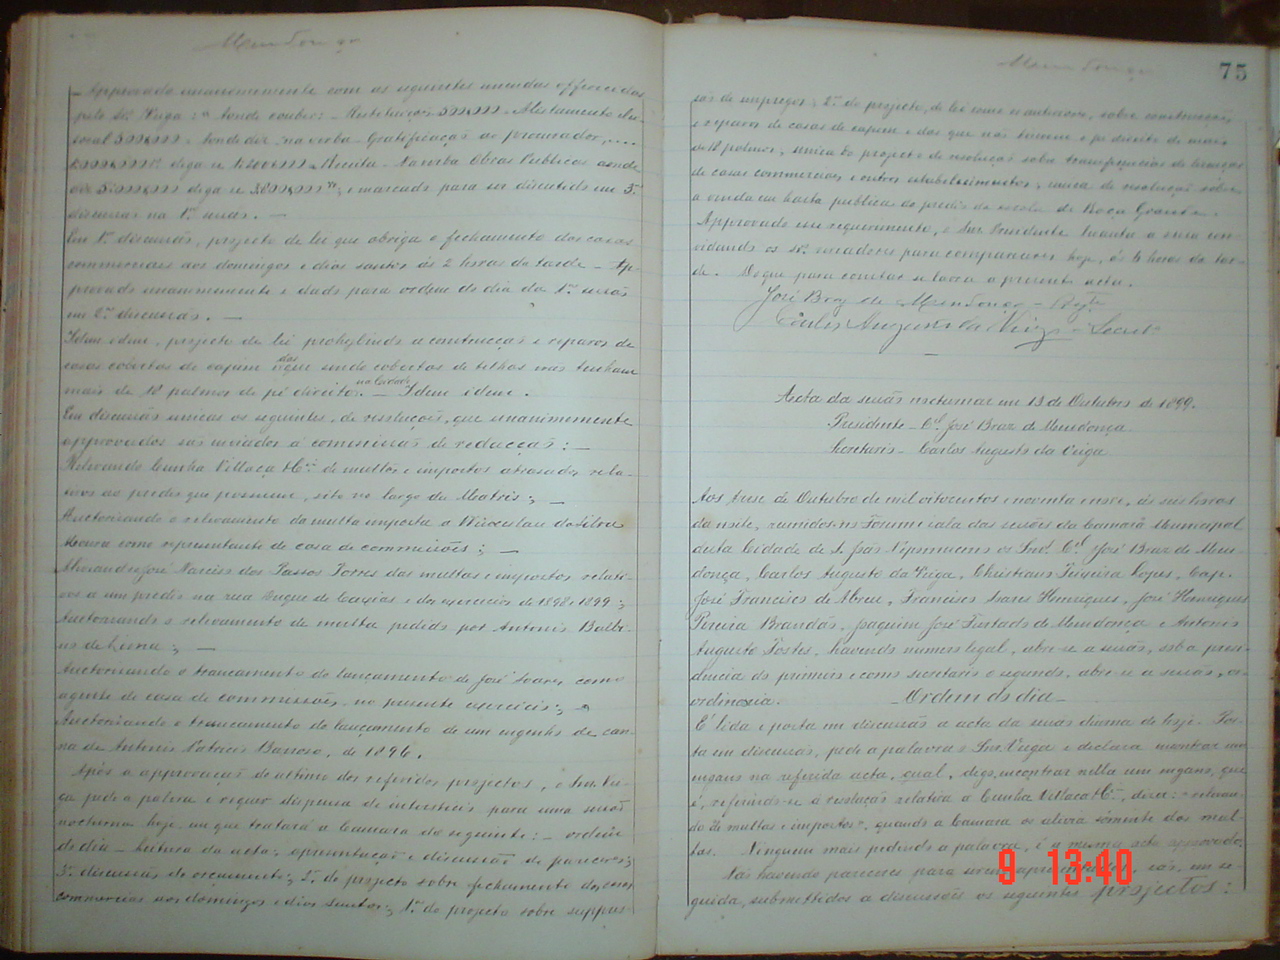 Mendonça
Approvado unanimemente com as seguintes emendas offerecidas
pelo Sr. Veiga: "onde couber: - Restituições 500$000 - Alistamento elei-
toral 500$000 - onde diz na verba - Gratificação ao procurador, ....
diga-se - Receita - Na verba Obras Publicas onde
diz 5:000$000 diga-se e marcado para ser discutido em 3ª
discussão na 1ª sessão. —
Em 1ª discussão, projecto de lei que obriga o fechamento das casas
commerciaes aos domingos e dias santos ás 2 horas da tarde - Ap-
provado unanimemente e dado para ordem do dia da 1ª sessão
em 2ª discussão. —
Idem idem, projecto de lei prohibindo a construcção e reparos de
casas cobertas de capim e das que sendo cobertas de telhas não tenham
mais de 18 palmos de pé direito, na Cidade. - Idem idem.
Em discussão unica os seguintes, de resoluções, que unanimemente
approvados são enviados á commissão de redacção: —
Relevando Cunha Villaça & Cia. de multas e impostos atrasados rela-
tivos ao predio que possuem, sito no largo da Matriz; —
Auctorisando o relevamento da multa imposta a Wencesláu da Silva
Moura como representante de casa de commissões; —
Alliviando José Narciso dos Passos Torres das multas e impostos relati-
vos a um predio na rua Duque de Caxias e dos exercicios de 1898 e 1899;
Auctorisando o relevamento de multa pedido por Antonio Balbi-
no de Lima; —
Auctorisando o trancamento do lançamento de José Soares como
agente de casa de commissões, no presente exercicio; —
Auctorisando o trancamento do lançamento de um engenho de can-
na de Antonio Patricio Barroso, de 1896.
Após a approvação do ultimo dos referidos projectos, o Snr. Vei-
ga pede a palavra e requer dispensa de intersticio para uma sessão
nocturna hoje, em que tratará a Camara do seguinte: - ordem
do dia - leitura da acta; apresentação e discussão de pareceres;
3ª discussão do orçamento; 2ª do projecto sobre fechamento das casas
commerciaes aos domingos e dias santos; 1ª do projecto sobre suppres-
Mendonça
75
são de empregos; 2ª do projecto, de lei como o anterior, sobre construcções
e reparos de casas de capim e das que não tiverem e pé direito de mais
de 18 palmos, unica do projecto de resolução sobre transferencias de licenças
de casas commerciaes e outros estabelecimentos; unica de resolução sobre
a venda em hasta publica do predio da escola de Roça Grande.
Approvado seu requerimento, o Snr. Presidente levanta a sessão con-
vidando os Srs. vereadores para comparecerem hoje, ás 6 horas da tar-
de. Do que para constar se lavra a presente acta.
José Braz de Mendonça - Pręte
Carlos Augusto da Veiga - Secretº
—
Acta da sessão nocturna em 13 de Outubro de 1899.
Presidente - Cel. José Braz de Mendonça.
Secretario - Carlos Augusto da Veiga.
Aos treze de Outubro de mil oitocentos e noventa e nove, ás seis horas
da noite, reunidos no Forum e sala das sessões da Camara Municipal
desta Cidade de S. João Nepomuceno os Snrs. Cel. José Braz de Men-
donça, Carlos Augusto da Veiga, Christiano Teixeira Lopes, Cap.
José Francisco de Abreu, Francisco Soares Henriques, José Henriques
Pereira Brandão, Joaquim José Furtado de Mendonça e Antonio
Augusto Fortes, havendo numero legal, abre-se a sessão, sob a presi-
dencia do primeiro e como secretario o segundo, abre-se a sessão, or-
dinaria. - Ordem do dia -
E' lida e posta em discussão a acta da sessão diurna de hoje. Pos-
ta em discussão, pede a palavra o Snr. Veiga e declara encontrar um
engano na referida acta, qual, digo, encontrar nella um engano, que
é, referindo-se á resolução relativa a Cunha Villaça & Cia., dizer: "relevan-
do de multas e impostos", quando a Camara os alivia sómente das mul-
tas. Ninguem mais pedindo a palavra, é a mesma acta approvada.
Não havendo pareceres para serem são, em se-
guida, submettidos a discussões os seguintes projectos:
9 13:40